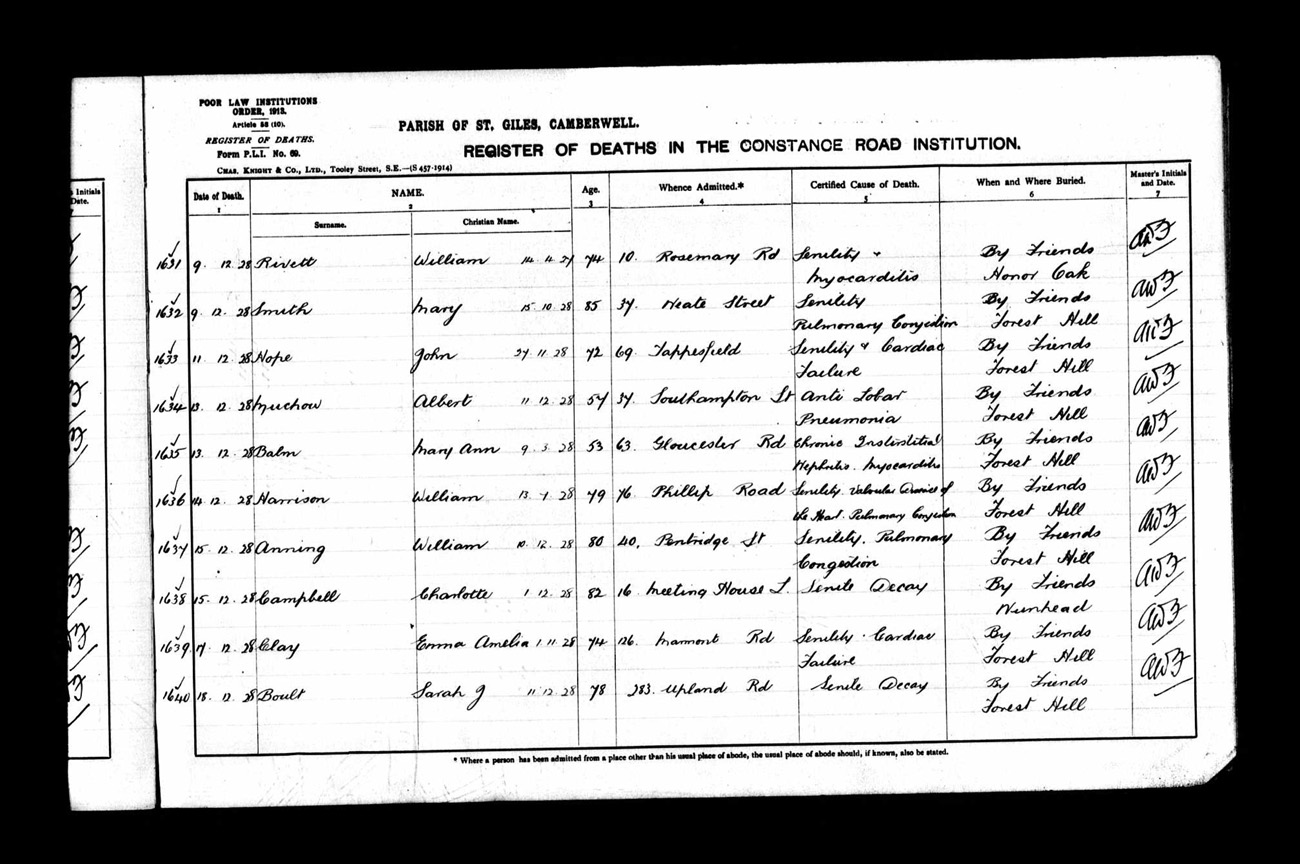 POOR LAW INSTITUTIONS
ORDER, 1913.
Article 58 (10).
REGISTER OF DEATHS.
Form P.L.I. No. 69.
CHAS. KNIGHT & CO., LTD., Tooley Street, S.E.—(S 457-1914)
PARISH OF ST. GILES, CAMBERWELL.
REGISTER OF DEATHS IN THE CONSTANCE ROAD INSTITUTION.
s Initials
Date.
Date of Death. NAME. Age. Whence Admitted.* Certified Cause of Death. When and Where Buried. Master's Initials and Date.
1 2 3 4 5 6 7
Surname. Christian Name.
1631 9. 12. 28 Rivett William 14. 4. 27 74 10. Rosemary Rd Senility + By Friends
Myocarditis Honor Oak
1632 9. 12. 28 Smith Mary 15. 10. 28 85 37. Neate Street Senility By Friends
Pulmonary Congestion Forest Hill
1633 11. 12. 28 Hope John 27 11. 28 72 69. Tappesfield Senility & Cardiac By Friends
Failure Forest Hill
1634 13. 12. 28 Muchow Albert 11. 12. 28 57 37. Southampton St Lobar By Friends
Pneumonia Forest Hill
1635 13. 12. 28 Balm Mary Ann 9. 3. 28 53 63. Gloucester Rd Chronic Insterstitial By Friends
Nephritis. Myocarditis Forest Hill
1636 14. 12. 28 Harrison William 13 1 28 79 76 Phillip Road Senility. Valvular of By Friends
the Heart. Pulmonary Congestion Forest Hill
1637 15. 12. 28 Anning William 10. 12. 28 80 40, Pentridge St Senility. Pulmonary By Friends
Congestion Forest Hill
1638 15. 12. 28 Campbell Charlotte 1 12. 28 82 16 Meeting House L. Senile Decay By Friends
Nunhead
1639 17. 12. 28 Clay Emma Amelia 1. 11. 28 74 126. Marmont Rd Senility. Cardiac By Friends
Failure Forest Hill
1640 18. 12. 28 Boult Sarah J 11. 12. 28 78 283. Upland Rd Senile Decay By Friends
Forest Hill
* Where a person has been admitted from a place other than his usual place of abode, the usual place of abode should, if known, also be stated.